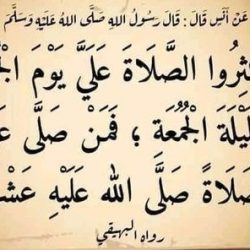 عَنْ أَنَسٍ قَالَ : قَالَ رَسُولُ اللهِ صَلَّى اللهُ عَلَيْهِ وَسَلَّمَ
ثِرُوا الصَّلَاةَ عَلَيَّ يَوْمَ الْجُ
لَيْلَةَ الْجُمُعَةِ ؛ فَمَنْ صَلَّى عَ
صَلَاةً صَلَّى الله عَلَيْهِ عَشْ
رواه البيهقي